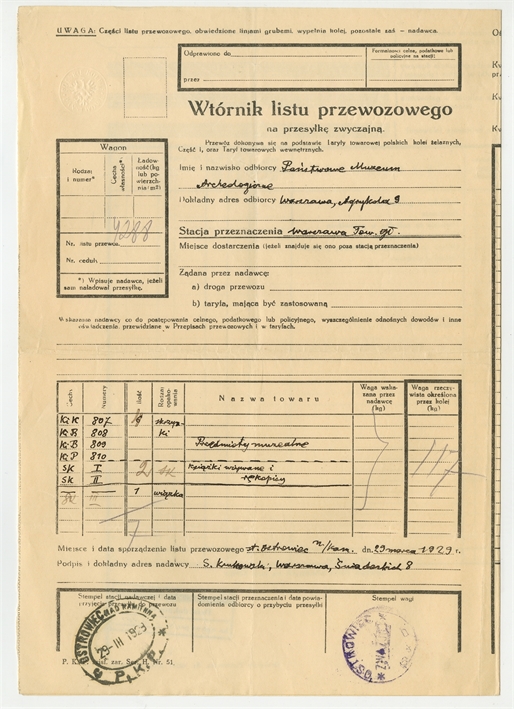 UWAGA: Części listu przewozowego, obwiedzione linjami grubemi, wypełnia kolej, pozostałe zaś – nadawca.
Odprawiono do
przez
Formalności celne, podatkowe lub
policyjne na stacji
Wtórnik listu przewozowego
na przesyłkę zwyczajną.
Przewóz dokonywa się na podstawie Taryfy towarowej polskich kolei żelaznych,
Część I, oraz Taryf towarowych wewnętrznych.
Wagon
Rodzaj
i numer*)
Cecha
własności*)
Ładow-
ność(kg)
lub po-
wierzch-
nia(m²)
4288
Nr. listu przewoz.
Nr. ceduły
*) Wpisuje nadawca, jeżeli
sam naładował przesyłkę.
Imię i nazwisko odbiorcy Państwowe Muzeum
Archeologiczne
Dokładny adres odbiorcy Warszawa, Agrykola 9
Stacja przeznaczenia Warszawa Tow. gł.
Miejsce dostarczenia (jeżeli znajduje się ono poza stacją przeznaczenia)
Żądana przez nadawcę:
a) droga przewozu
b) taryfa, mająca być zastosowaną
Wskazania nadawcy co do postępowania celnego, podatkowego lub policyjnego, wyszczególnienie odnośnych dowodów i inne
oświadczenia, przewidziane w Przepisach przewozowych i w taryfach.
Cechy
Numery
Ilość
Rodzaj
opako-
wania
Nazwa towaru
Waga wska-
zana przez
nadawcę
(kg)
Waga rzeczy-
wista określona
przez kolej
(kg)
807 skrzyn-
808 ki
809 Przedmioty muzealne
810
SK I 2 sk Książki używane i
SK II rękopisy
III 1 wiązka
117
Miejsce i data sporządzenie listu przewozowego st. Ostrowiec n/Kam. dn. 29 marca 1929 r.
Podpis i dokładny adres nadawcy S. Krukowski, Warszawa, Świętokrzyska 8
Stempel stacji nadawczej i data
przyjęcia
Stempel stacji przeznaczenia i data powia-
domienia odbiorcy o przybyciu przesyłki
Stempel wagi
OSTROWIEC NAD KAMIENNĄ
29 III 1929
P.K.P.
OSTROWIEC
P. K. P. zar. Ser. H. Nr. 51.